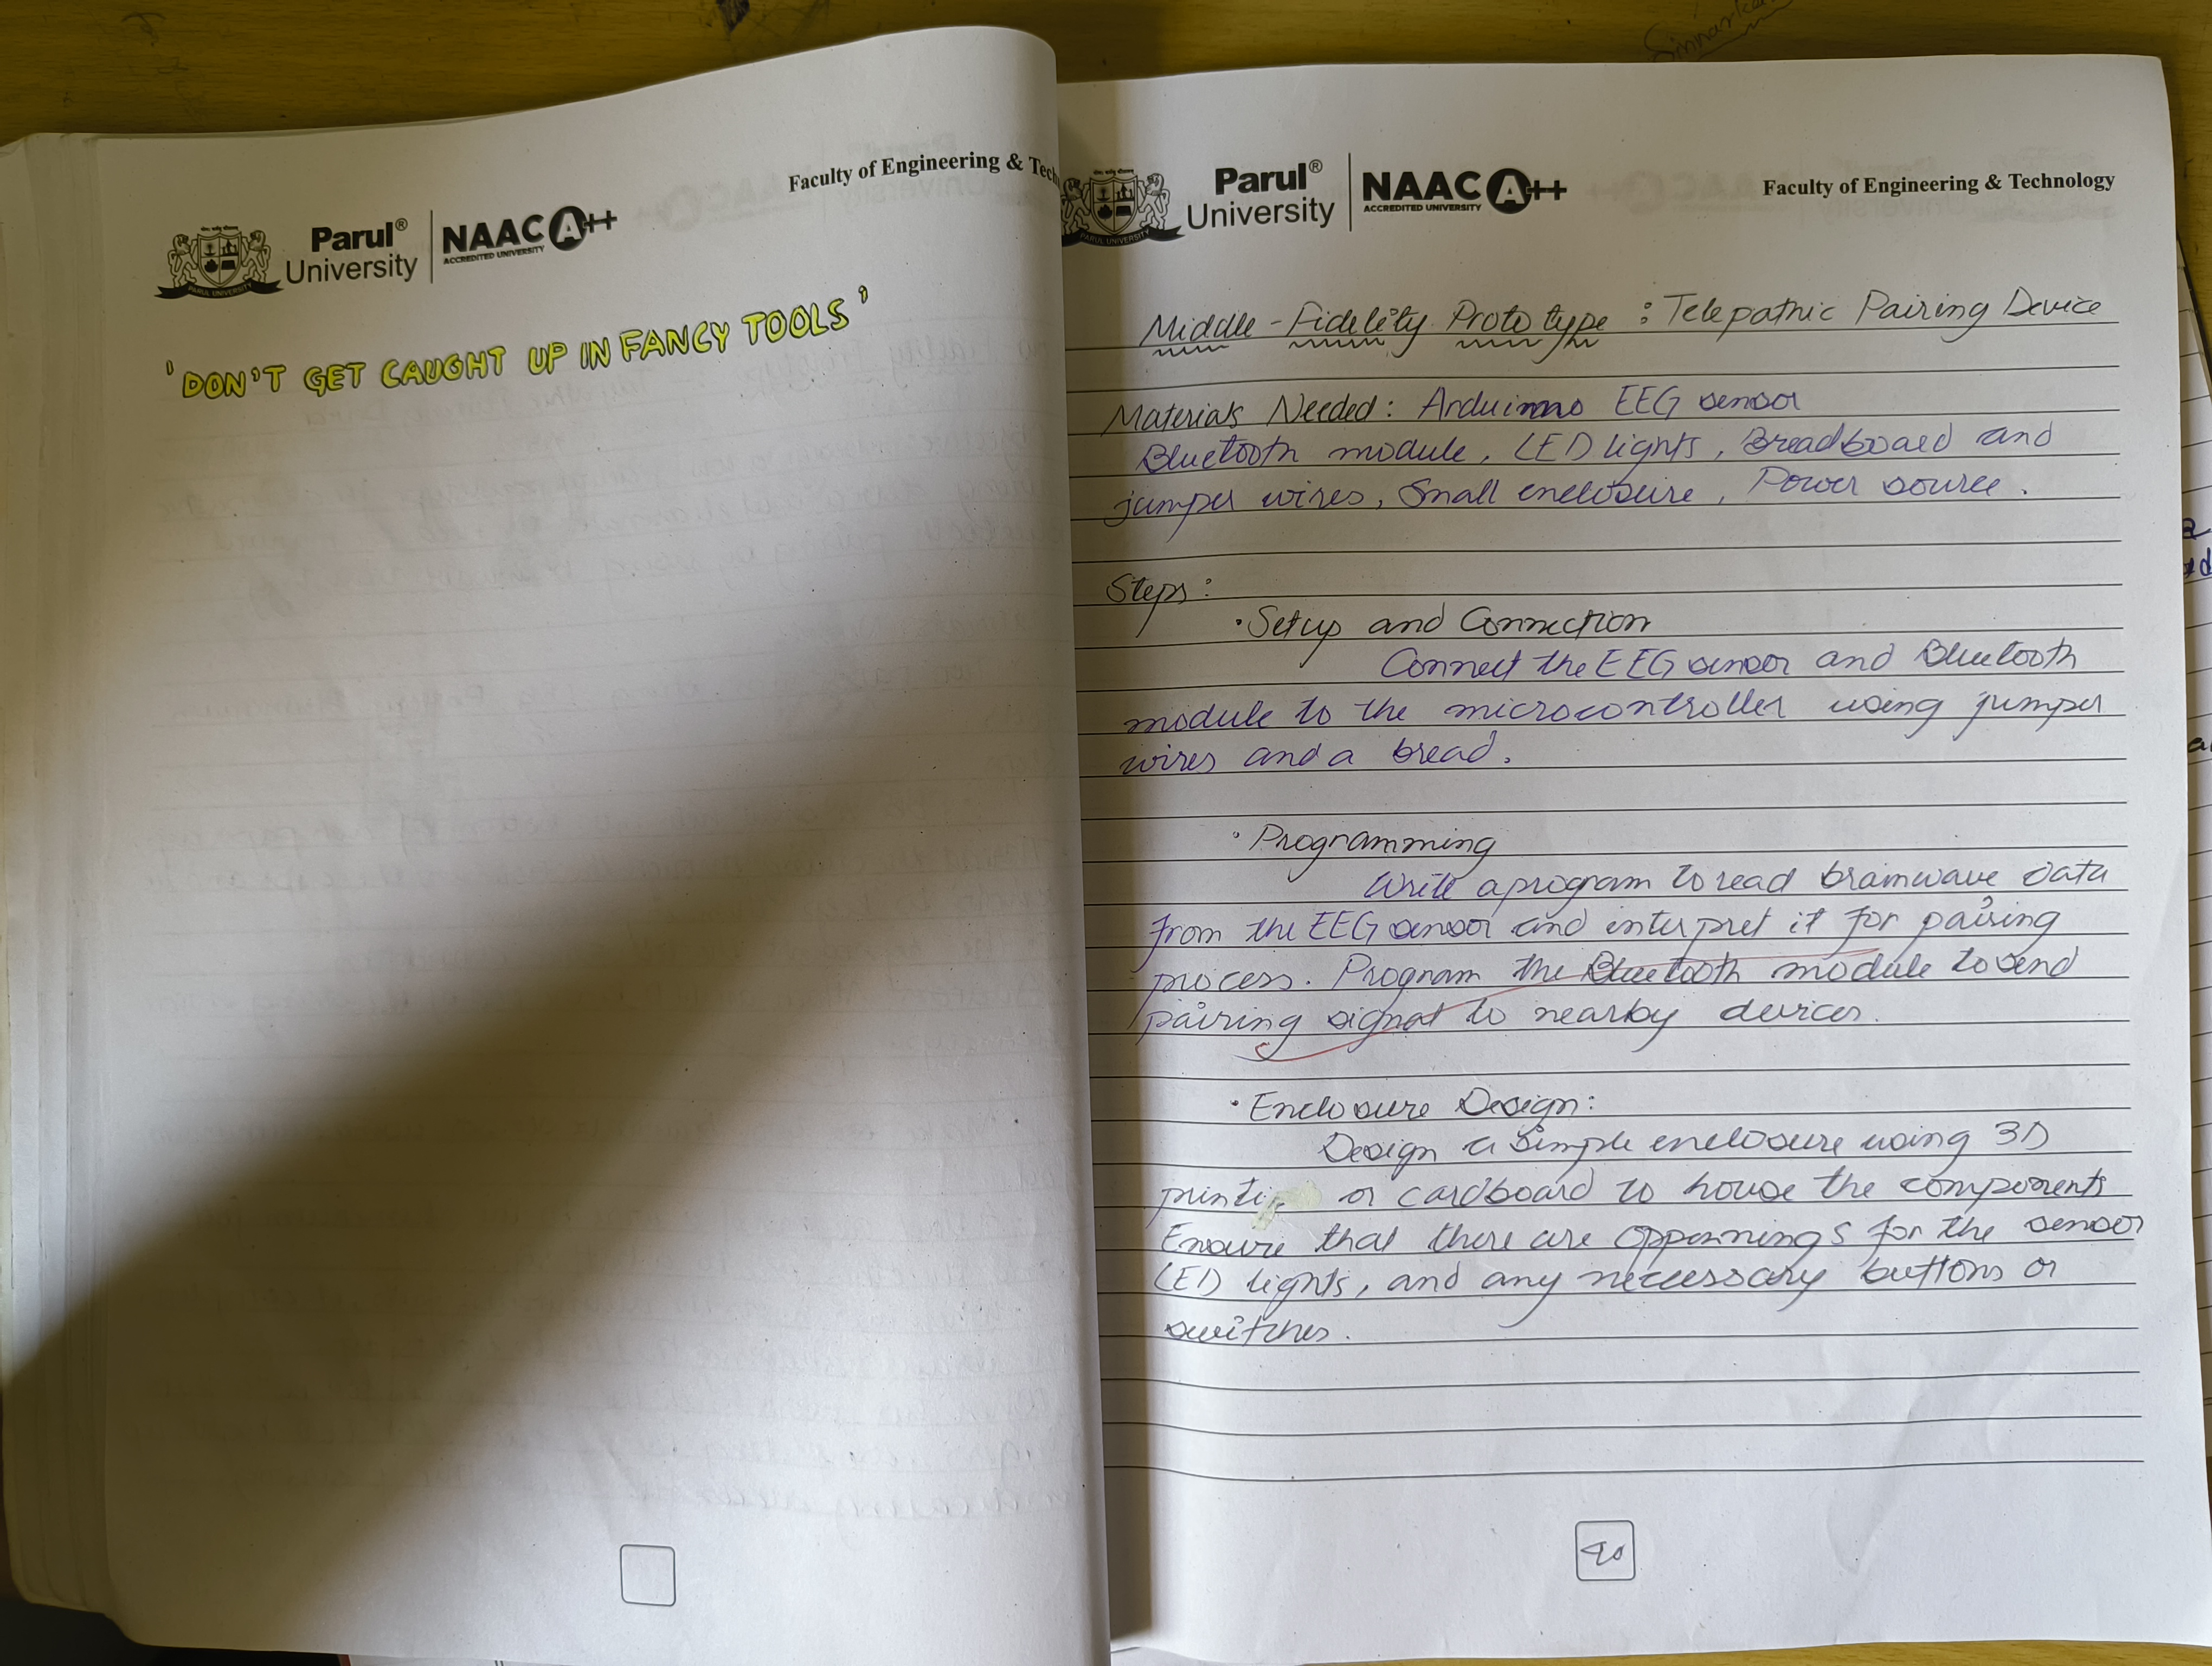 Faculty of Engineering & Tech
Parul®
University
NAAC A++
ACCREDITED UNIVERSITY
PARUL UNIVERSITY
'DON'T GET CAUGHT UP IN FANCY TOOLS'
Parul®
University
NAAC A++
ACCREDITED UNIVERSITY
PARUL UNIVERSITY
Faculty of Engineering & Technology
Middle-Fidelity Prototype : Telepathic Pairing Device
Materials Needed: Arduinno EEG sensor
Bluetooth module, LED lights, Breadboard and
jumper wires, Small enclosure, Power source.
Steps:
• Setup and Connection
Connect the EEG sensor and Bluetooth
module to the microcontroller using jumper
wires and a bread.
• Programming
Write a program to read brainwave data
from the EEG sensor and interpret it for pairing
process. Program the Bluetooth module to send
pairing signal to nearby devices.
• Enclosure Design:
Design a simple enclosure using 3D
printi or cardboard to house the components
Ensure that there are oppennings for the sensor
LED lights, and any necessary buttons or
switches.